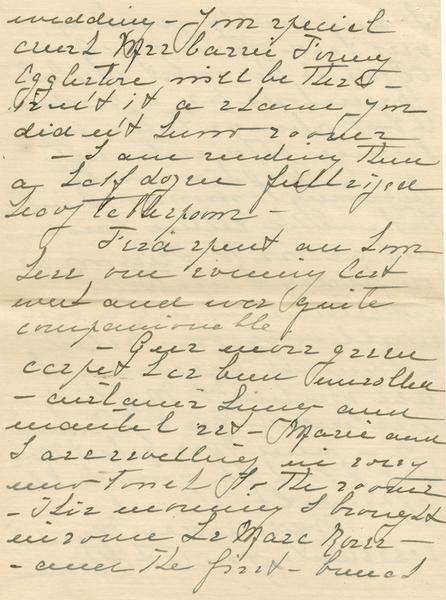 wedding - Your special
aunt Mrs Carrie Forney
Eggleston will be there -
Isn't it a shame you
did n't know sooner
- I am sending them
a half dozen full sized
heavy tablespoons -
Fred spent an hour
here one evening last
week and was quite
companionable
- Our moss green
carpet has been unrolled
- curtains hung and
mantel set - Marie and
I are revelling in every
new touch to the rooms
- This morning I brought
in some La Marc Roses -
- and the first - bunch